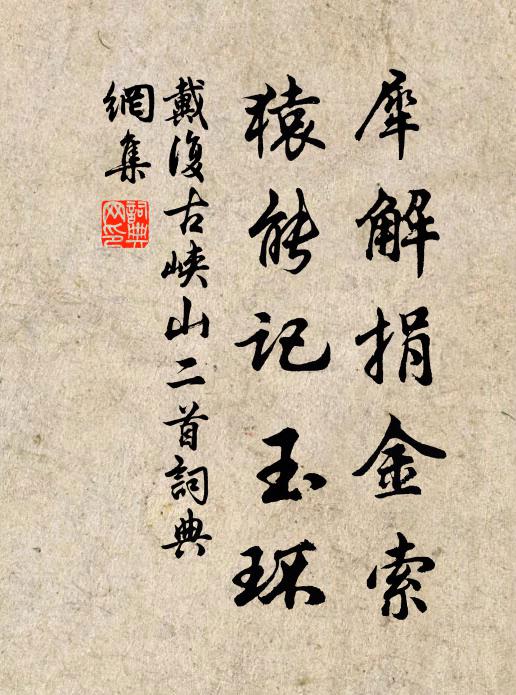 犀解捐金索
猿能记玉环
戴復古峽山二首詞典
網集
詞典
网印